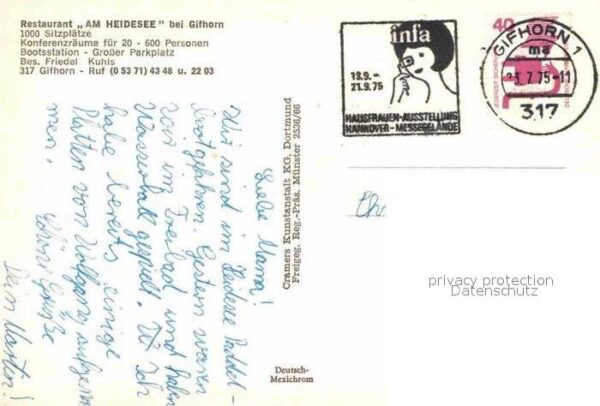 Restaurant „AM HEIDESEE" bei Gifhorn
1000 Sitzplätze
Konferenzräume für 20 - 600 Personen
Bootsstation - Großer Parkplatz
Bes. Friedel Kuhls
317 Gifhorn - Ruf (0 53 71) 43 48 u. 22 03
Liebe Mama!
Wir sind im Heidesee Paddel-
bootgefahren. Gestern waren
wir im Freibad und haben
Wasserball gespielt. Ich
habe bereits einige
Platten von Wolfgang aufgenom
men.
Grüße
Dein Marten!
Cramers Kunstanstalt KG, Dortmund
Freigeg. Reg.-Präs. Münster 2536/66
Deutsch-
Mexichrom
infa
13.9.-
21.9.75
HAUSFRAUEN-AUSSTELLUNG
HANNOVER-MESSEGELÄNDE
40
GIFHORN 1
ma
.7.75-11
317
privacy protection
Datenschutz